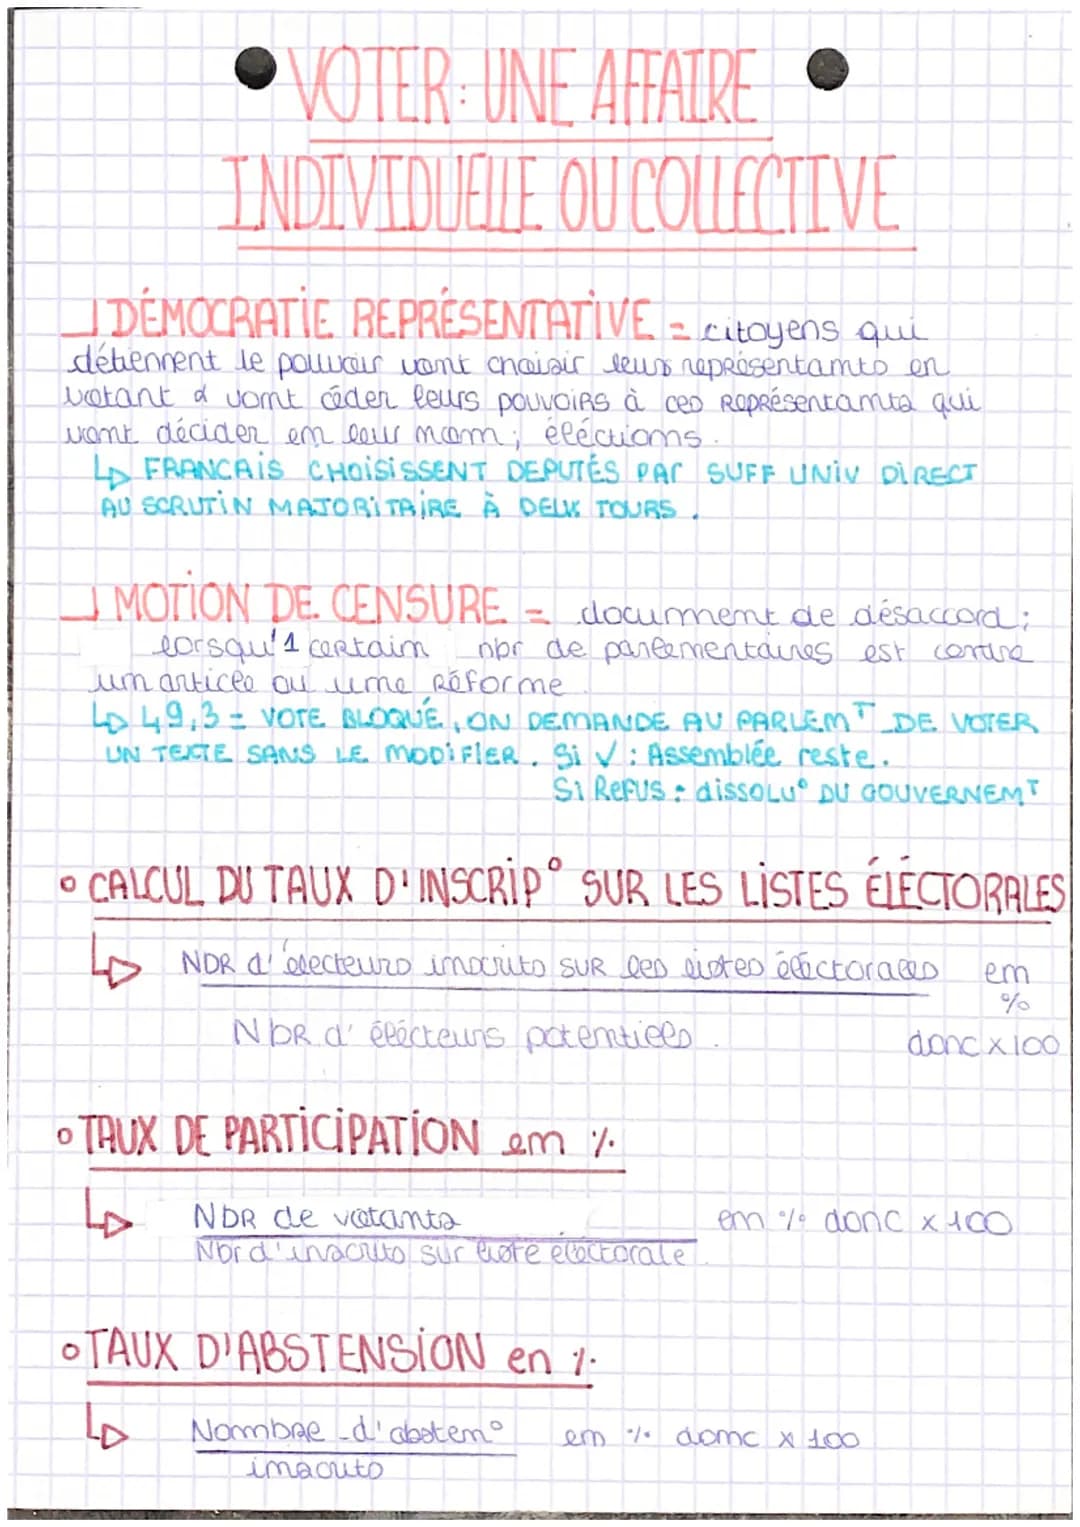 VOTER : UNE AFFAIRE
INDIVIDUELLE OU COLLECTIVE
DÉMOCRATIE REPRÉSENTATIVE = citoyens qui
détiennent le pouvoir vont choisir leurs représentants en
votant & vont céder leurs pouvoirs à ces Représentants qui
vont décider en leur nom ; éléctions.
↳ FRANCAIS CHOISISSENT DEPUTÉS PAR SUFF UNIV DIRECT
AU SCRUTIN MAJORITAIRE À DEUX TOURS.
MOTION DE CENSURE = document de désaccord ;
lorsqu'1 certain nbr de parlementaires est contre
un article ou une Réforme
↳ 49,3 = VOTE BLOQUÉ, ON DEMANDE AU PARLEMT DE VOTER
UN TEXTE SANS LE MODIFIER. Si ✓ : Assemblée reste.
Si Refus : dissolu° DU GOUVERNEMT
• CALCUL DU TAUX D'INSCRIP° SUR LES LISTES ÉLÉCTORALES
↳ NBR d'électeurs inscrits SUR les listes éléctorales en
%
Nbr d'élécteurs potentiels. donc x 100
• TAUX DE PARTICIPATION en %
↳ NBR de votants en % donc x 100
Nbr d'inscrits sur liste électorale
• TAUX D'ABSTENSION en %
↳ Nombre d'absten° en % donc x 100
inscrits